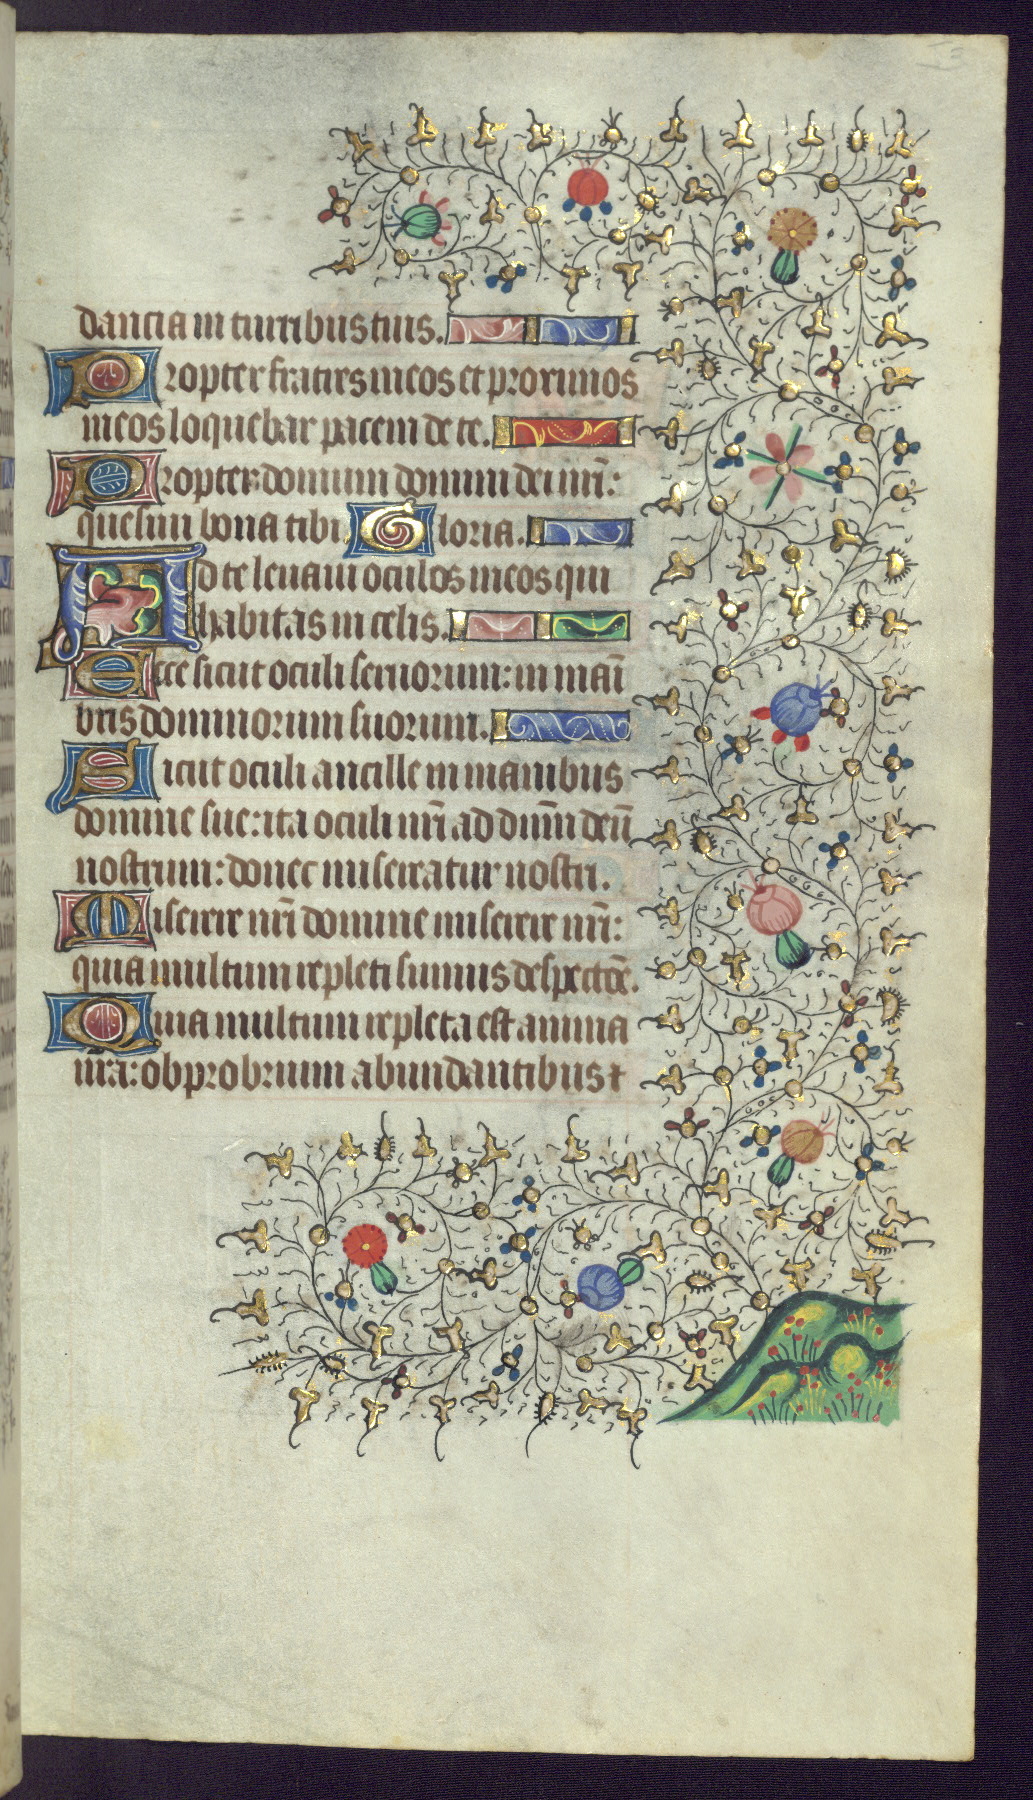 dancia in turribus tuis.
Propter fratres meos et proximos
meos loquebar pacem de te.
Propter domum domini dei nr̄i:
quesiui bona tibi. Gloria.
Ad te leuaui oculos meos qui
habitas in celis.
Ecce sicut oculi seruorum: in mani
bus dominorum suorum.
Sicut oculi ancille in manibus
domine sue: ita oculi nr̄i ad dn̄m deū
nostrum: donec misereatur nostri.
Miserere nr̄i domine miserere nr̄i:
quia multum repleti sumus despectiōe.
Quia multum repleta est anima
nr̄a: obprobrium abundantibus ⁊